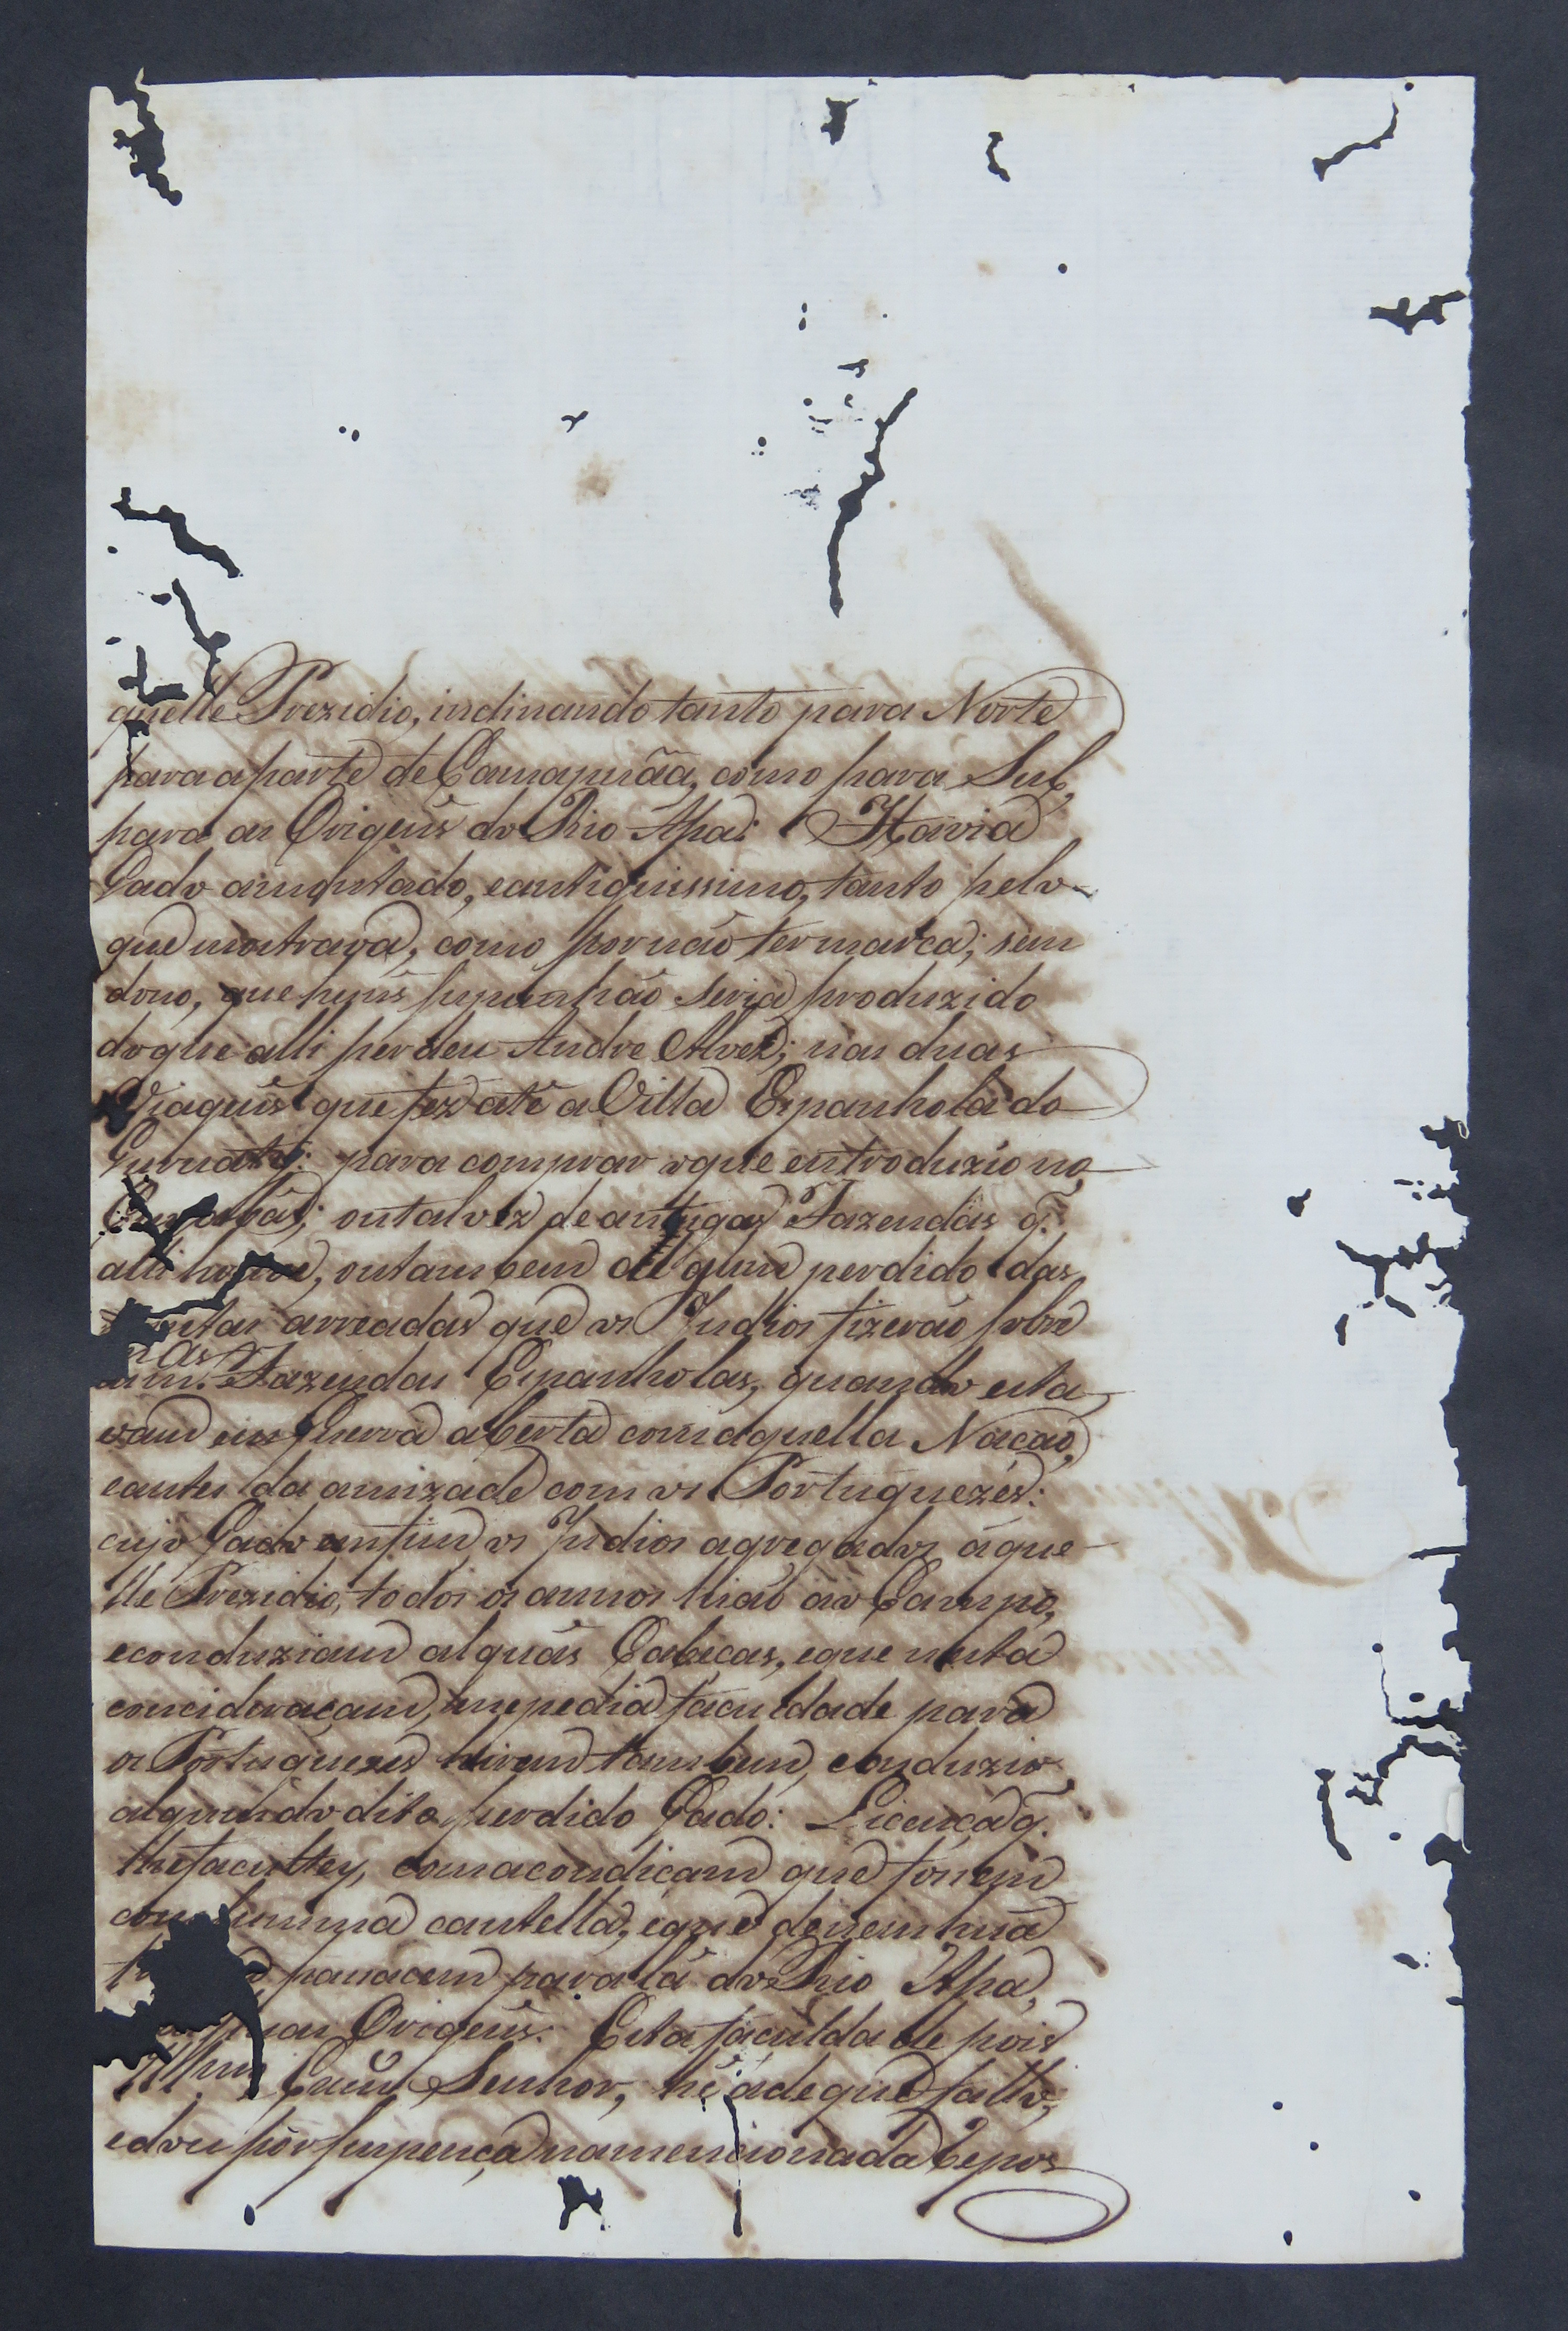 quelle Prezidio, inclinando tanto para Norte
para a parte de Camapuãa, como para Sul,
para as Origens do Rio Apa: Havia
Gado amontado, e antiquissimo, tanto pelo
que mostrava, como por não ter marca; sem
dono, que huns supunhão seria produzido
do que alli perdeu Andre Alvez; nas duas
Viagens que fez até a Villa Espanhola do
para comprar o que entroduzio no
ou talvez de antigas Fazendas q.
alli houve, ou tambem de algum perdido das
arreadas que os Indios fizerão sobre
Fazendas Espanholas, quando esta
vam em Guerra aberta com aquella Nação,
e antes da amizade com os Portuguezes:
cujo Gado emfim os Indios agregados áque
lle Prezidio, todos os annos hião ao Campo,
e conduziam alguãs Cabeças, e que nesta
concideraçam, me pedia faculdade para
os Portuguezes hirem tambem, conduzir
algum do dito perdido Gado: Licença q.
lhe facultey, com a condiçam que fossem
com summa cautella, e que de nenhuã
passacem para lá do Rio Apa,
suas Origens. Esta faculdade pois
Illmo Exmo Senhor, hé a de que fallo,
e dou por suspença na mencionada Repos